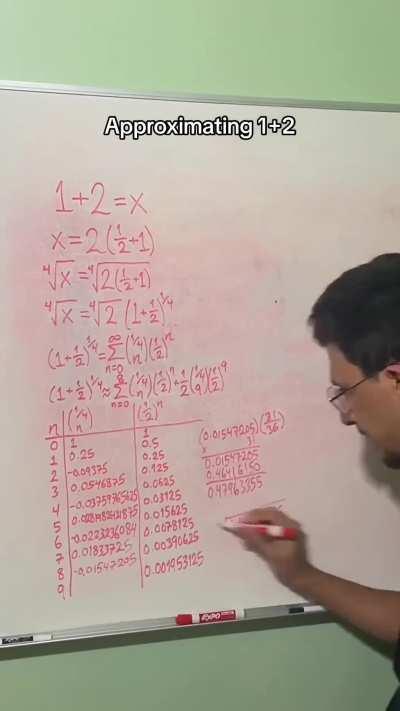 Approximating 1+2
1+2=x
x=2(1/2+1)
⁴√x=⁴√2(1/2+1)
⁴√x=⁴√2(1+1/2)^1/4
(1+1/2)^1/4=∑n=0^∞(1/4 n)(1/2)^n
(1+1/2)^1/4≈∑n=0^8(1/4 n)(1/2)^n+1/2(1/4 9)(1/2)^9
n (1/4 n) (1/2)^n
0 1 1
1 0.25 0.5
2 -0.09375 0.25
3 0.0546875 0.125
4 0.0625
5 0.03125
6 0.015625
7 0.01833725 0.0078125
8 -0.01547205 0.00390625
9 0.001953125
(0.01547205)(31/36)
x 31
0.01547205
0.46416150
0.47963355
EXPO